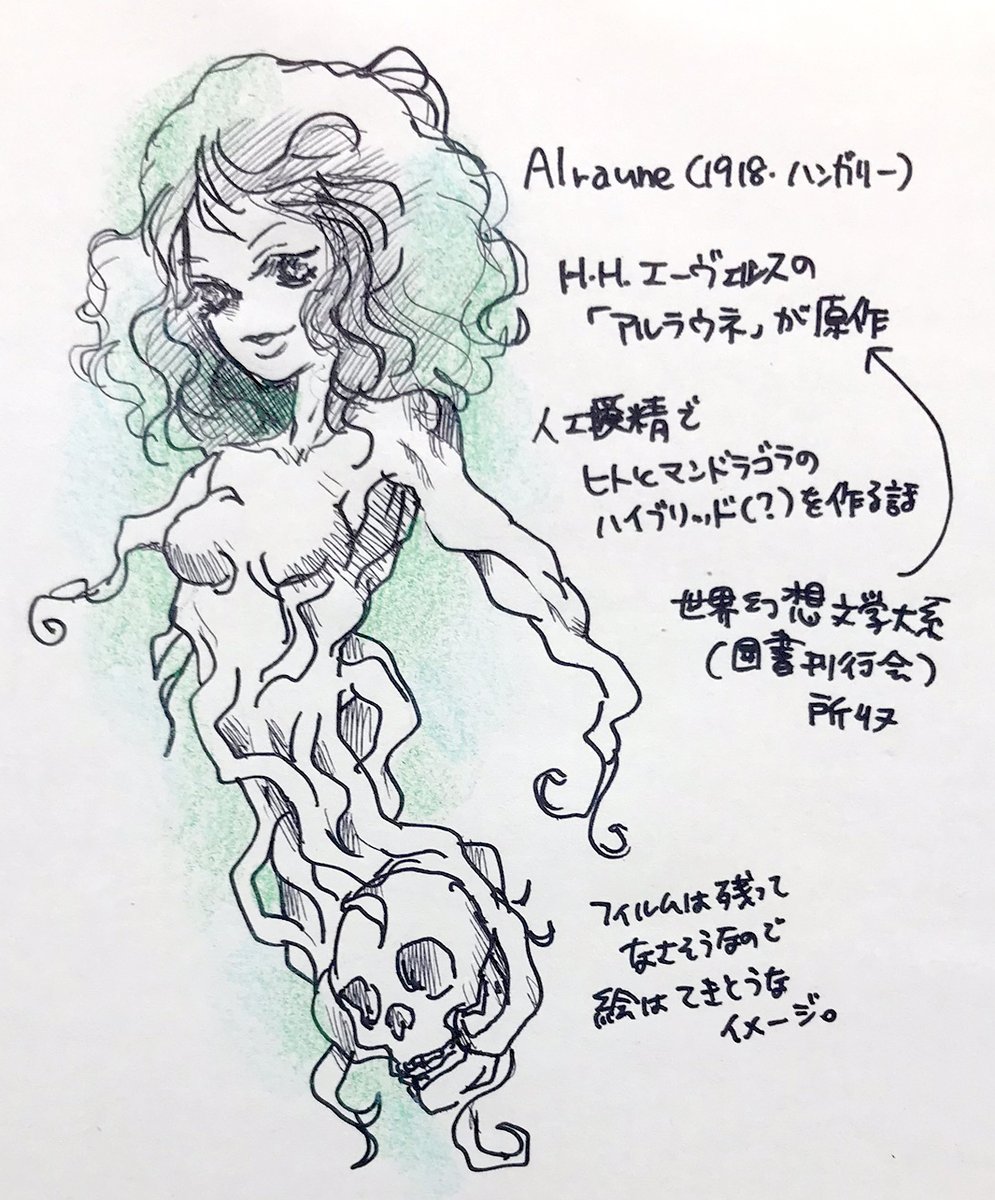 Alraune (1918・ハンガリー)
H.H.エーヴェルスの
「アルラウネ」が原作
人工授精で
ヒトとマンドラゴラの
ハイブリッド(?)を作る話
世界幻想文学大系
(図書刊行会)
所収
フィルムは残って
なさそうなので
絵はてきとうな
イメージ。